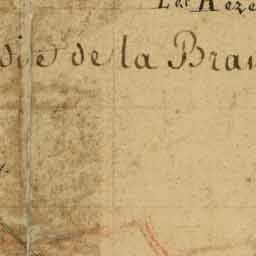 Les Reze
die de la Bran